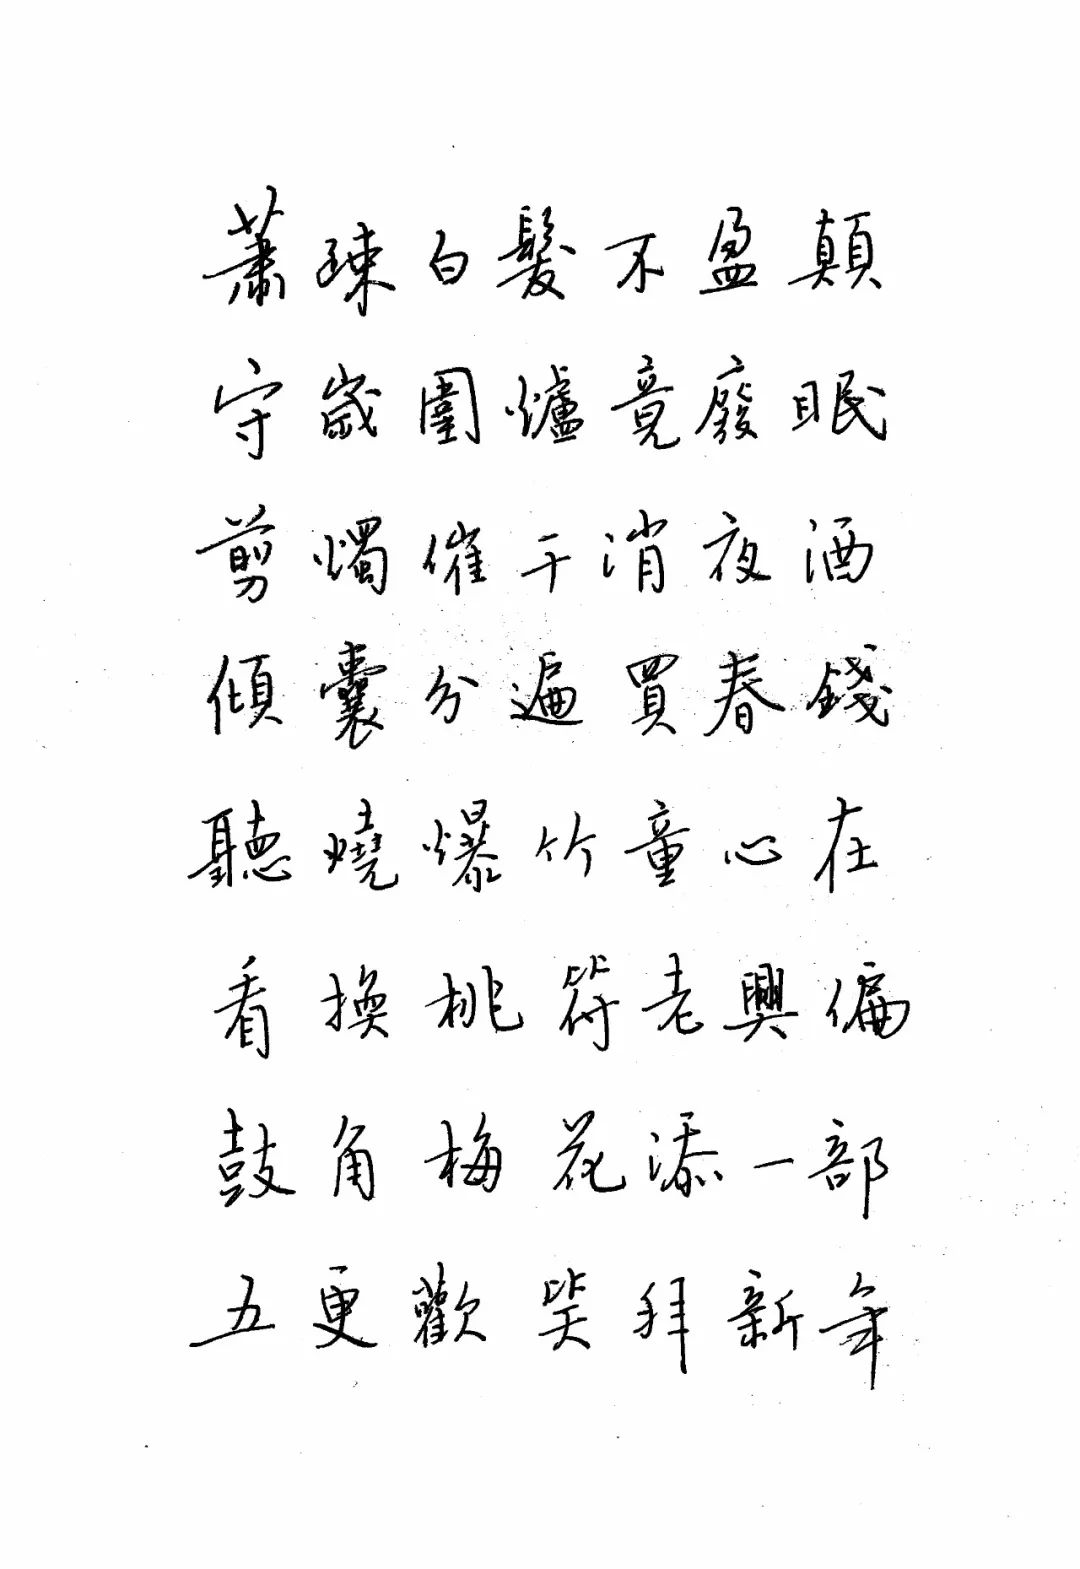 蕭疎白髮不盈顛
守歲圍爐竟廢眠
剪燭催干消夜酒
傾囊分遍買春錢
聽燒爆竹童心在
看換桃符老興偏
鼓角梅花添一部
五更歡笑拜新年